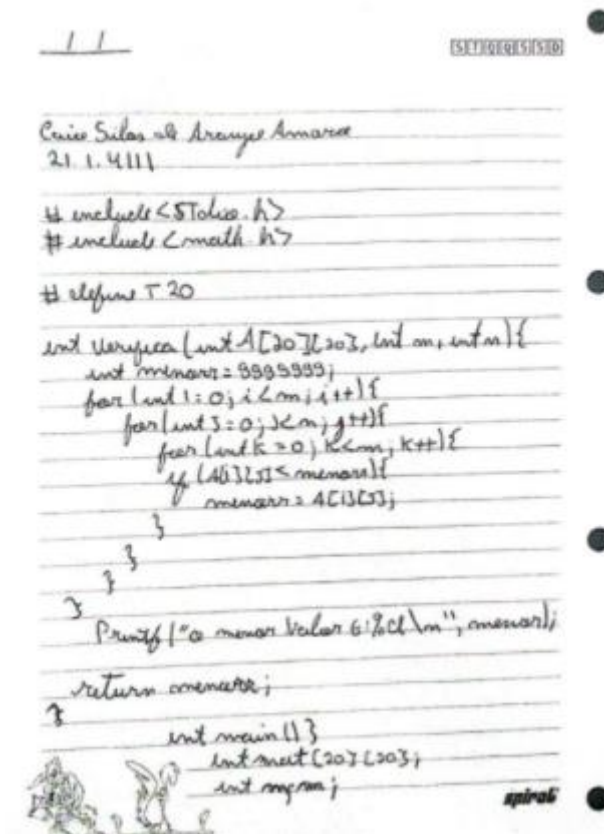 / /
S T Q Q S S D
Caio Silas de Araujo Amaral
21.1.4111
# include <STdio.h>
# include <math.h>
# define T 20
int Verifica (int A[20][20], int m, int n){
int menorr = 9999999;
for (int i = 0; i < m; i++){
for (int J = 0; J < n; j++){
for (int k = 0; K < m; K++){
if (A[i][J] < menorr){
menorr = A[i][J];
}
}
}
}
Printf ("o menor Valor é: %d \n", menor);
return menorr;
}
int main () }
int mat [20][20];
int
spiral